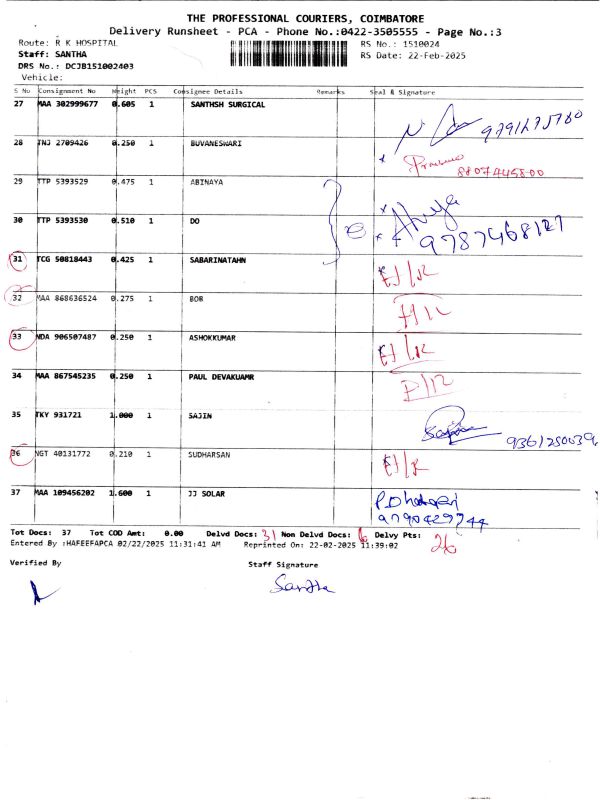 THE PROFESSIONAL COURIERS, COIMBATORE
Delivery Runsheet - PCA - Phone No.:0422-3505555 - Page No.:3
Route: R K HOSPITAL RS No.: 1510024
Staff: SANTHA RS Date: 22-Feb-2025
DRS No.: DCJB151002403
Vehicle:
S No Consignment No Weight PCS Consignee Details Remarks Seal & Signature
27 MAA 302999677 0.605 1 SANTHSH SURGICAL
28 TNJ 2709426 0.250 1 BUVANESWARI
8807445800
29 TTP 5393529 0.475 1 ABINAYA
30 TTP 5393530 0.510 1 DO
9787468127
31 TCG 50818443 0.425 1 SABARINATAHN
32 MAA 868636524 0.275 1 BOB
33 NDA 906507487 0.250 1 ASHOKKUMAR
34 MAA 867545235 0.250 1 PAUL DEVAKUAMR
35 TKY 931721 1.000 1 SAJIN
36 NGT 40131772 0.210 1 SUDHARSAN
37 MAA 109456202 1.600 1 JJ SOLAR
9790429744
Tot Docs: 37 Tot COD Amt: 0.00 Delvd Docs: 31 Non Delvd Docs: 6 Delvy Pts: 26
Entered By :HAFEEFAPCA 02/22/2025 11:31:41 AM Reprinted On: 22-02-2025 11:39:02
Verified By Staff Signature
Santha